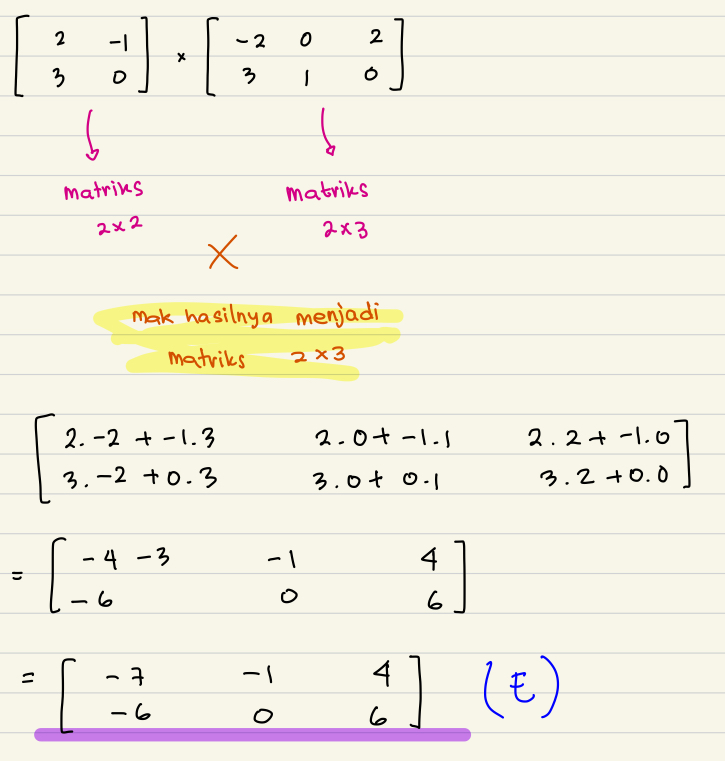 [ 2 -1 ] × [ -2 0 2 ]
[ 3 0 ] [ 3 1 0 ]
matriks matriks
2×2 2×3
×
mak hasilnya menjadi
matriks 2×3
[ 2.-2 + -1.3 2.0 + -1.1 2.2 + -1.0 ]
[ 3.-2 + 0.3 3.0 + 0.1 3.2 + 0.0 ]
= [ -4 -3 -1 4 ]
[ -6 0 6 ]
= [ -7 -1 4 ] (E)
[ -6 0 6 ]